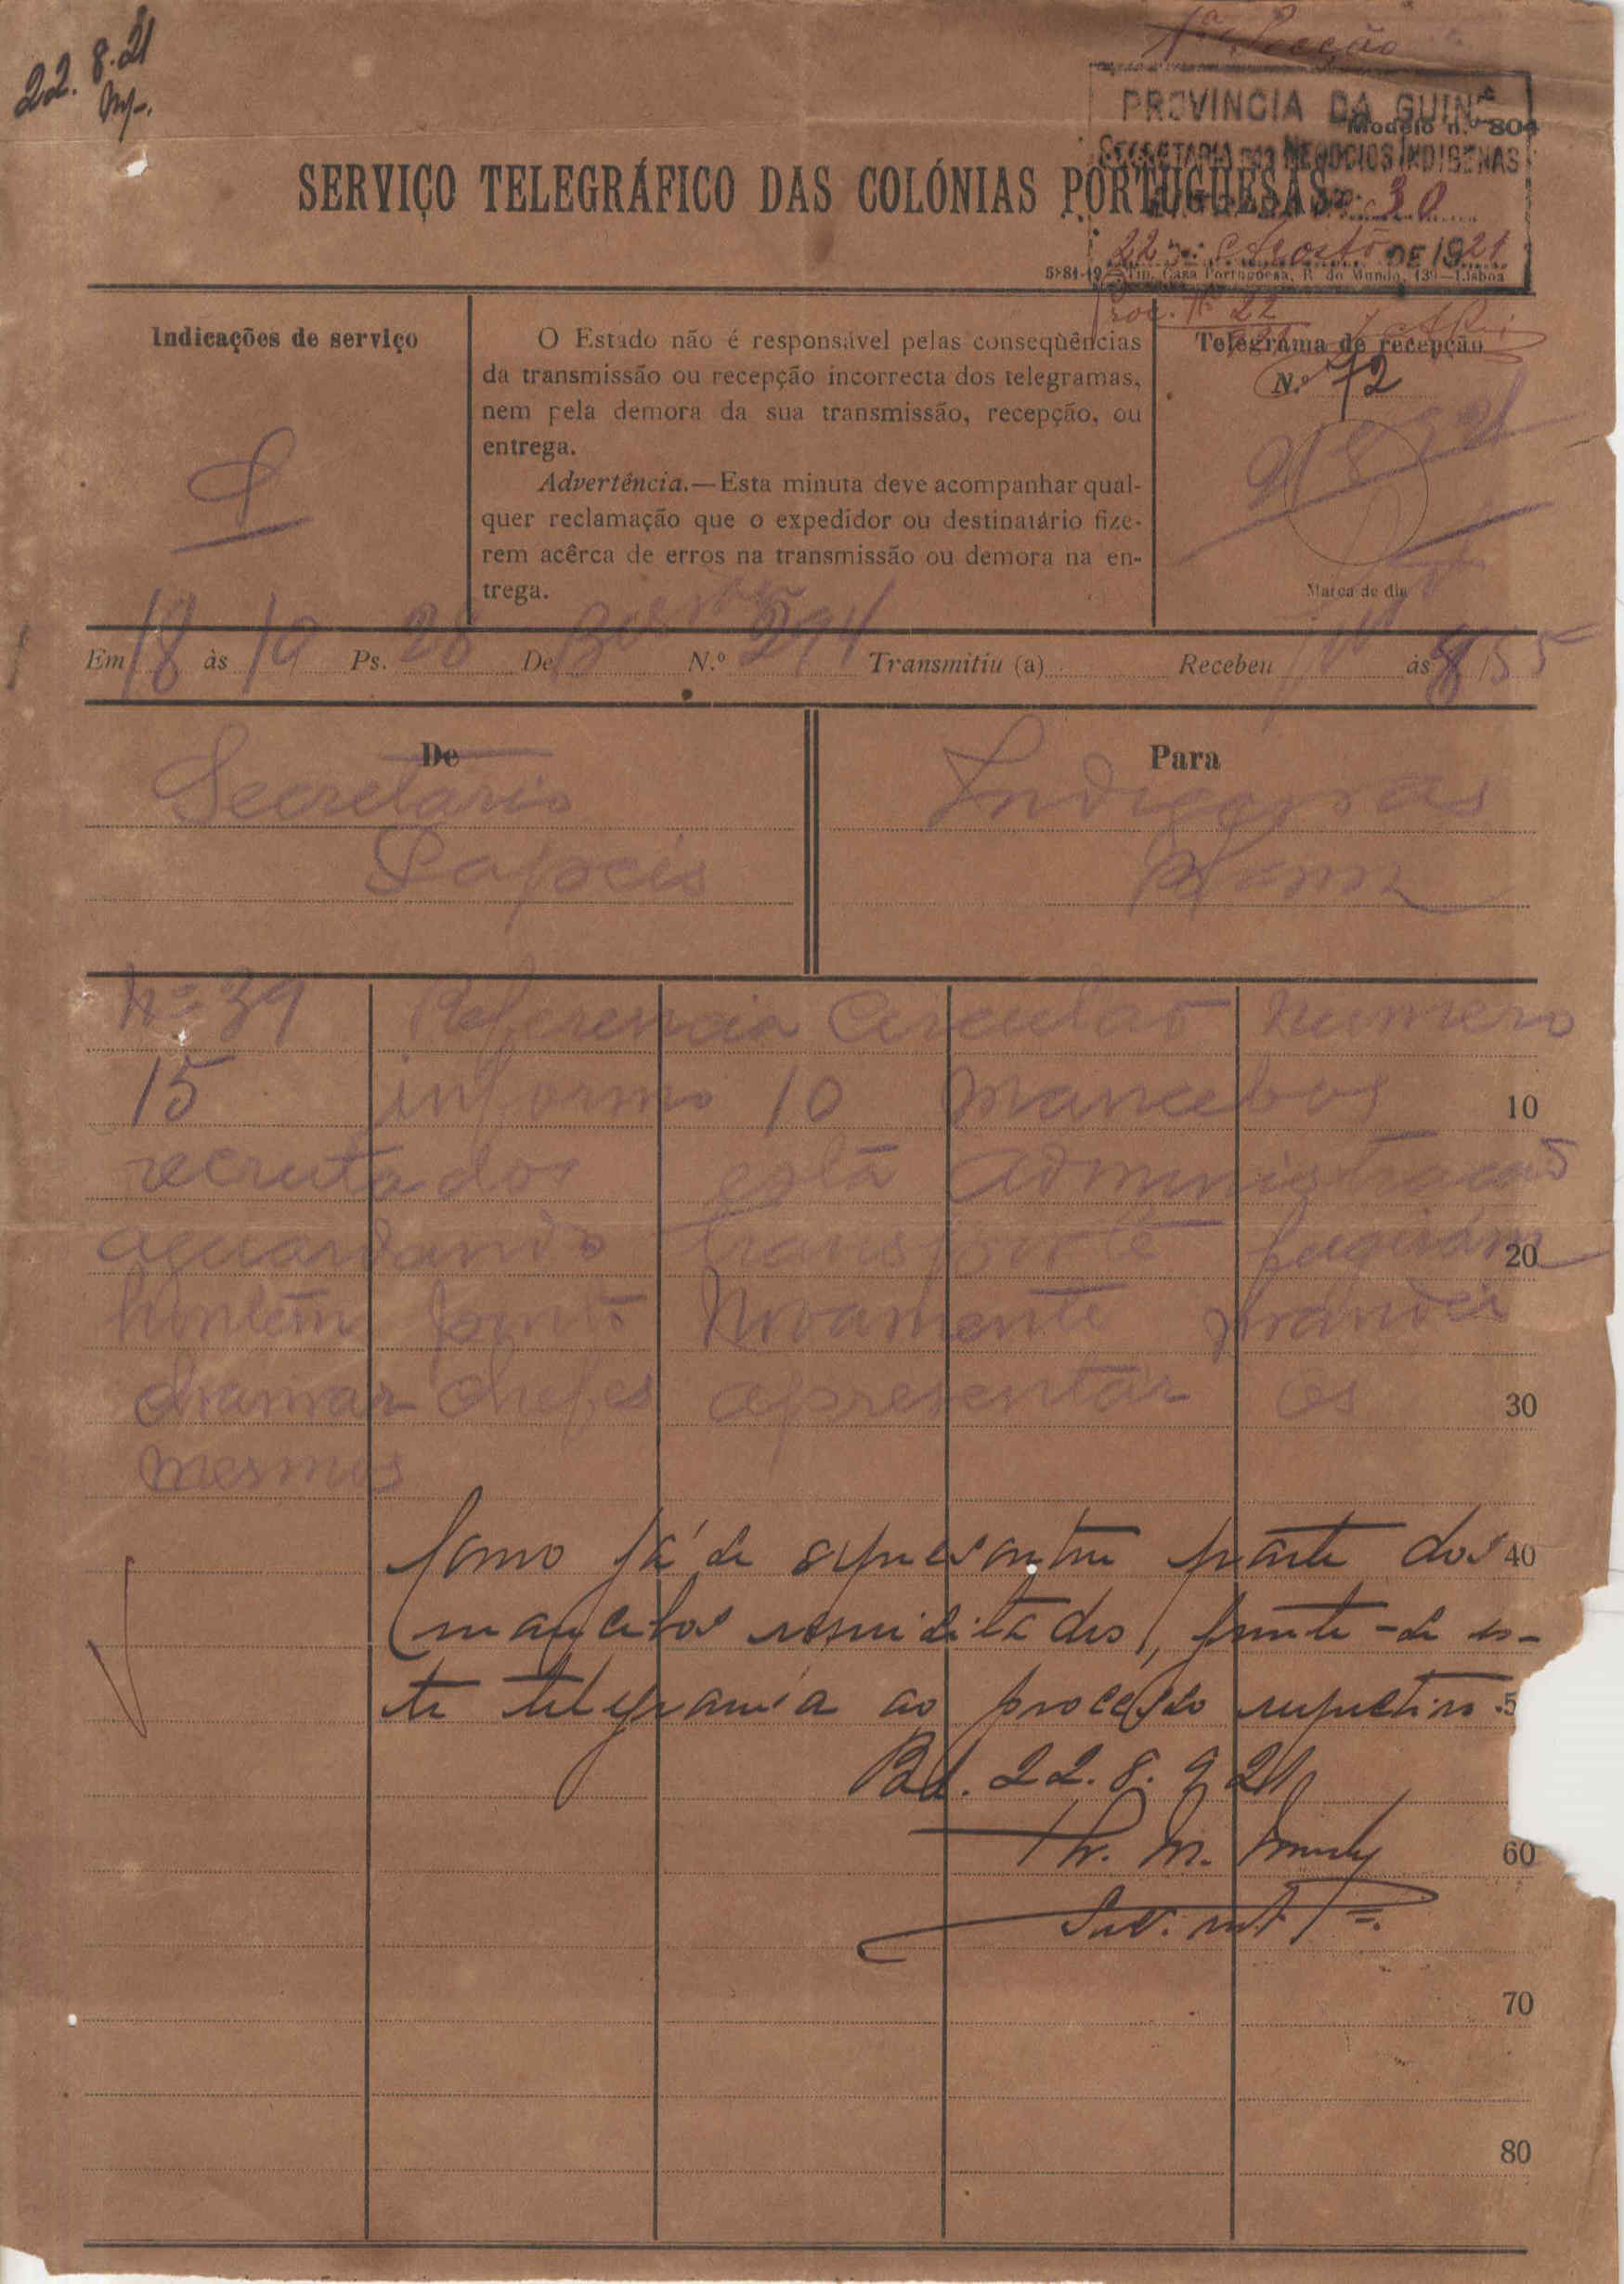 22.8.21
1ª Secção
PROVINCIA DA GUINÉ
Modelo n.º 804
SECRETARIA DOS NEGOCIOS INDIGENAS
SERVIÇO TELEGRÁFICO DAS COLÓNIAS PORTUGUESAS
30
22 DE Agosto DE 1921
Tip. Casa Portuguesa, R. do Mundo, 139—Lisboa
Proc. Nº 22
921
Indicações de serviço
S
O Estado não é responsável pelas conseqüências
da transmissão ou recepção incorrecta dos telegramas,
nem pela demora da sua transmissão, recepção, ou
entrega.
Advertência.—Esta minuta deve acompanhar qual-
quer reclamação que o expedidor ou destinatário fize-
rem acêrca de erros na transmissão ou demora na en-
trega.
Telegrama de recepção
N.º 72
Marca de dia
Em 18 às 10 Ps. 28 De N.º 294 Transmitiu (a) Recebeu às 8/55
De
Secretario
Papeis
Para
Indigenas
Nº 39 Referencia Circular Numero
15 informo 10 mancebos 10
recrutados está Administracão
aguardando transporte fugirám 20
hontem ponto Novamente mandei
chamar chefes apresentar os 30
mesmos
Como já se apresentou parte dos 40
mancebos requisitados, junte-se es-
te telegrama ao processo respectivo. 5
Bol. 22.8.921
60
70
80